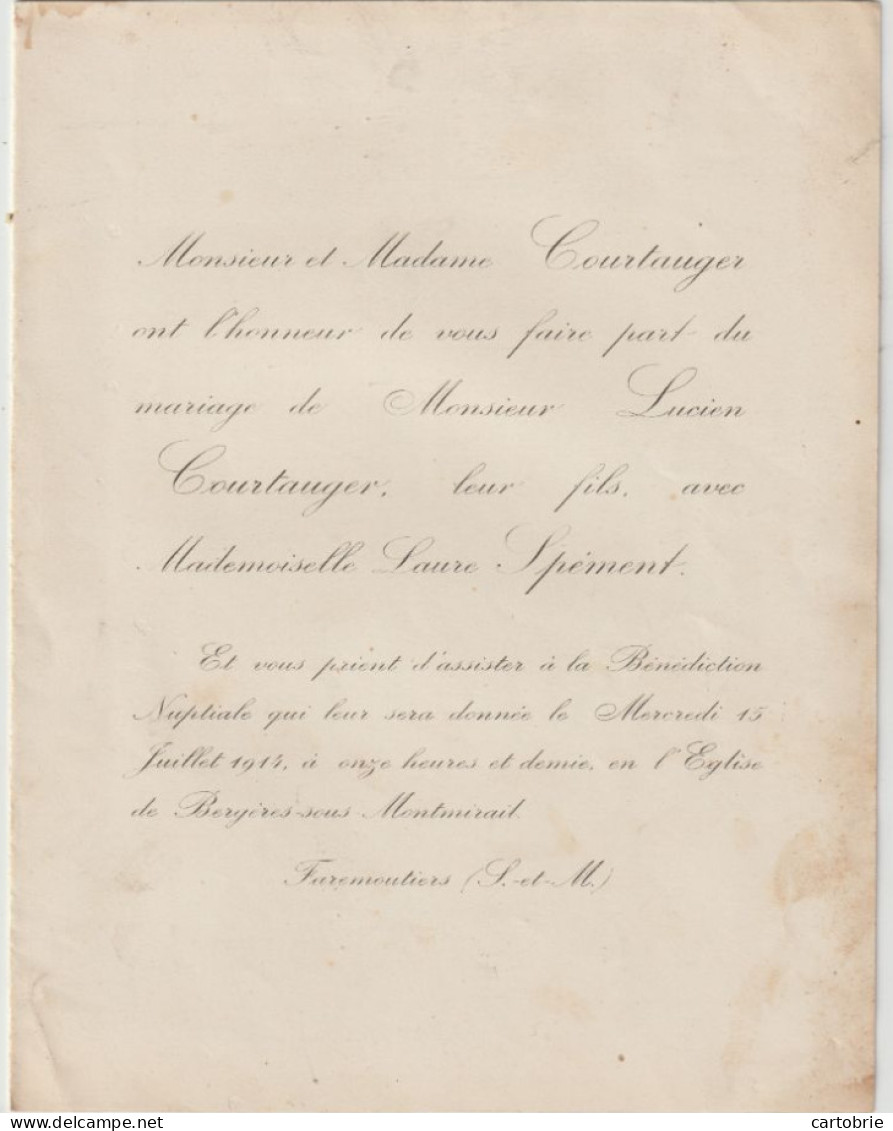 Monsieur et Madame Courtauger
ont l'honneur de vous faire part du
mariage de Monsieur Lucien
Courtauger, leur fils, avec
Mademoiselle Laure Spément.
Et vous prient d'assister à la Bénédiction
Nuptiale qui leur sera donnée le Mercredi 15
Juillet 1914, à onze heures et demie, en l'Eglise
de Bergères-sous-Montmirail.
Faremoutiers (S.-et-M.)
www.delcampe.net
cartobrie